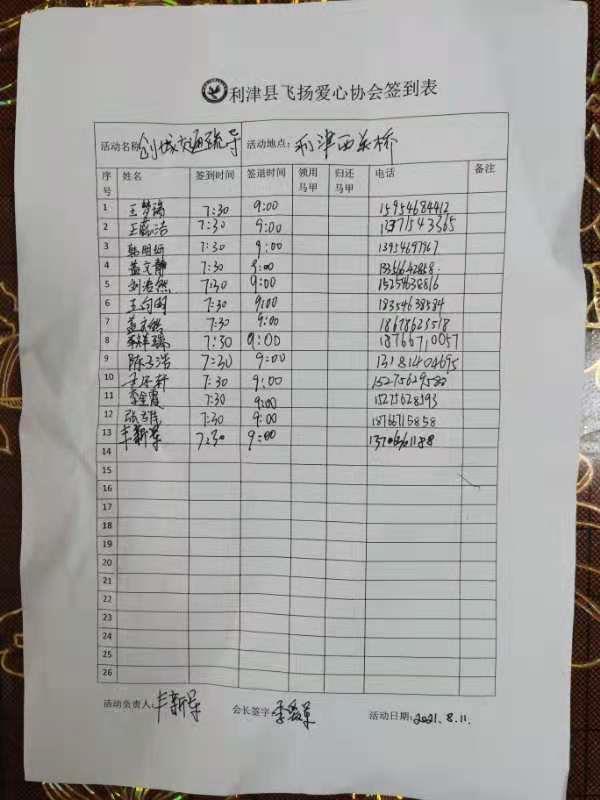 利津县飞扬爱心协会签到表
活动名称 创城交通疏导 活动地点: 利津西关桥
序号 姓名 签到时间 签退时间 领用马甲 归还马甲 电话 备注
1 王梦涵 7:30 9:00 15954684412
2 王 洁 7:30 9:00
3 韩明妍 7:30 9:00 13954697967
4 盖文静 7:30 9:00
5 刘浩然 7:30 9:00 15254632816
6 王向国 7:30 9:00 18354638584
7 盖 7:30 9:00 18678625518
8 李 瑞 7:30 9:00 18766710057
9 陈子浩 7:30 9:00 13181404695
10 轩 7:30 9:00
11 李金霞 7:30 9:00 15275628593
12 张 7:30 9:00 18766715858
13 丰新军 7:30 9:00
14
15
16
17
18
19
20
21
22
23
24
25
26
活动负责人: 丰新军 会长签字: 李 军 活动日期: 2021.8.11.